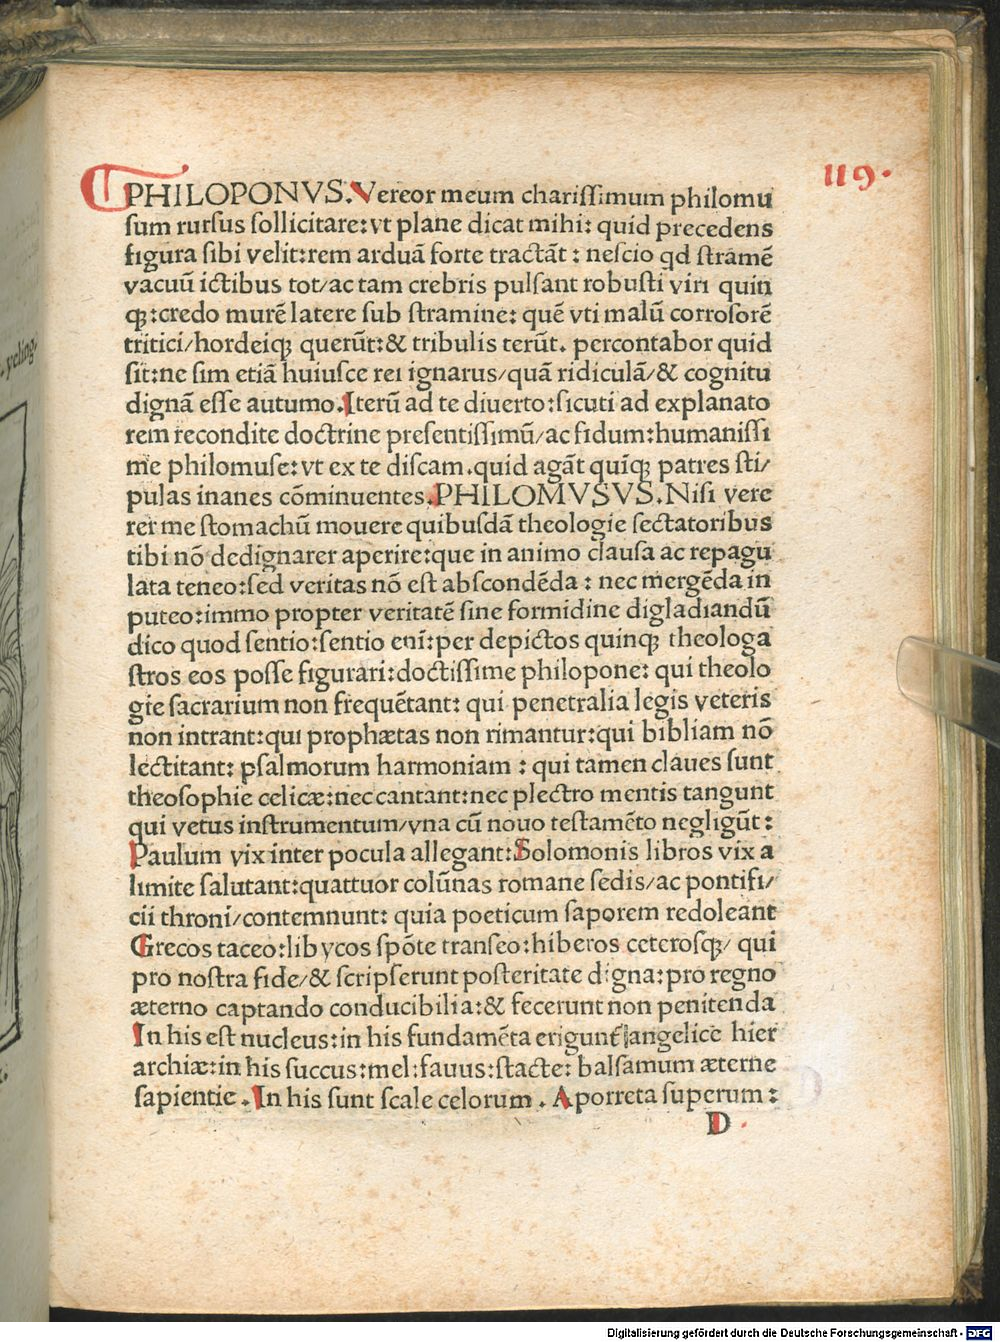 119.
PHILOPONVS. Vereor meum charissimum philomu
sum rursus sollicitare: vt plane dicat mihi: quid precedens
figura sibi velit: rem arduā forte tractāt: nescio qd stramē
vacuū ictibus tot/ ac tam crebris pulsant robusti viri quin
qꝫ: credo murē latere sub stramine: quē vti malū corrosorē
tritici/ hordeiqꝫ querūt: & tribulis terūt. percontabor quid
sit: ne sim etiā huiusce rei ignarus/ quā ridiculā/ & cognitu
dignā esse autumo. Iterū ad te diuerto: sicuti ad explanato
rem recondite doctrine presentissimū/ ac fidum: humanissi
me philomuse: vt ex te discam. quid agāt quīqꝫ patres sti/
pulas inanes cōminuentes. PHILOMVSVS. Nisi vere
rer me stomachū mouere quibusdā theologie sectatoribus
tibi nō dedignarer aperire: que in animo clausa ac repagu
lata teneo: sed veritas nō est abscondēda: nec mergēda in
puteo: immo propter veritatē sine formidine digladiandū
dico quod sentio: sentio enī: per depictos quinqꝫ theologa
stros eos posse figurari: doctissime philopone: qui theolo
gie sacrarium non frequētant: qui penetralia legis veteris
non intrant: qui prophætas non rimantur: qui bibliam nō
lectitant: psalmorum harmoniam: qui tamen claues sunt
theosophie celicæ: nec cantant: nec plectro mentis tangunt
qui vetus instrumentum/ vna cū nouo testamēto negligūt:
Paulum vix inter pocula allegant: Solomonis libros vix a
limite salutant: quattuor colūnas romane sedis/ ac pontifi/
cii throni/ contemnunt: quia poeticum saporem redoleant
Grecos taceo: libycos spōte transeo: hiberos ceterosqꝫ/ qui
pro nostra fide/ & scripserunt posteritate digna: pro regno
æterno captando conducibilia: & fecerunt non penitenda
In his est nucleus: in his fundamēta erigunt᷑ angelice hier
archiæ: in his succus: mel: fauus: stacte: balsamum æterne
sapientie. In his sunt scale celorum. Aporreta superum:
D
Digitalisierung gefördert durch die Deutsche Forschungsgemeinschaft - DFG